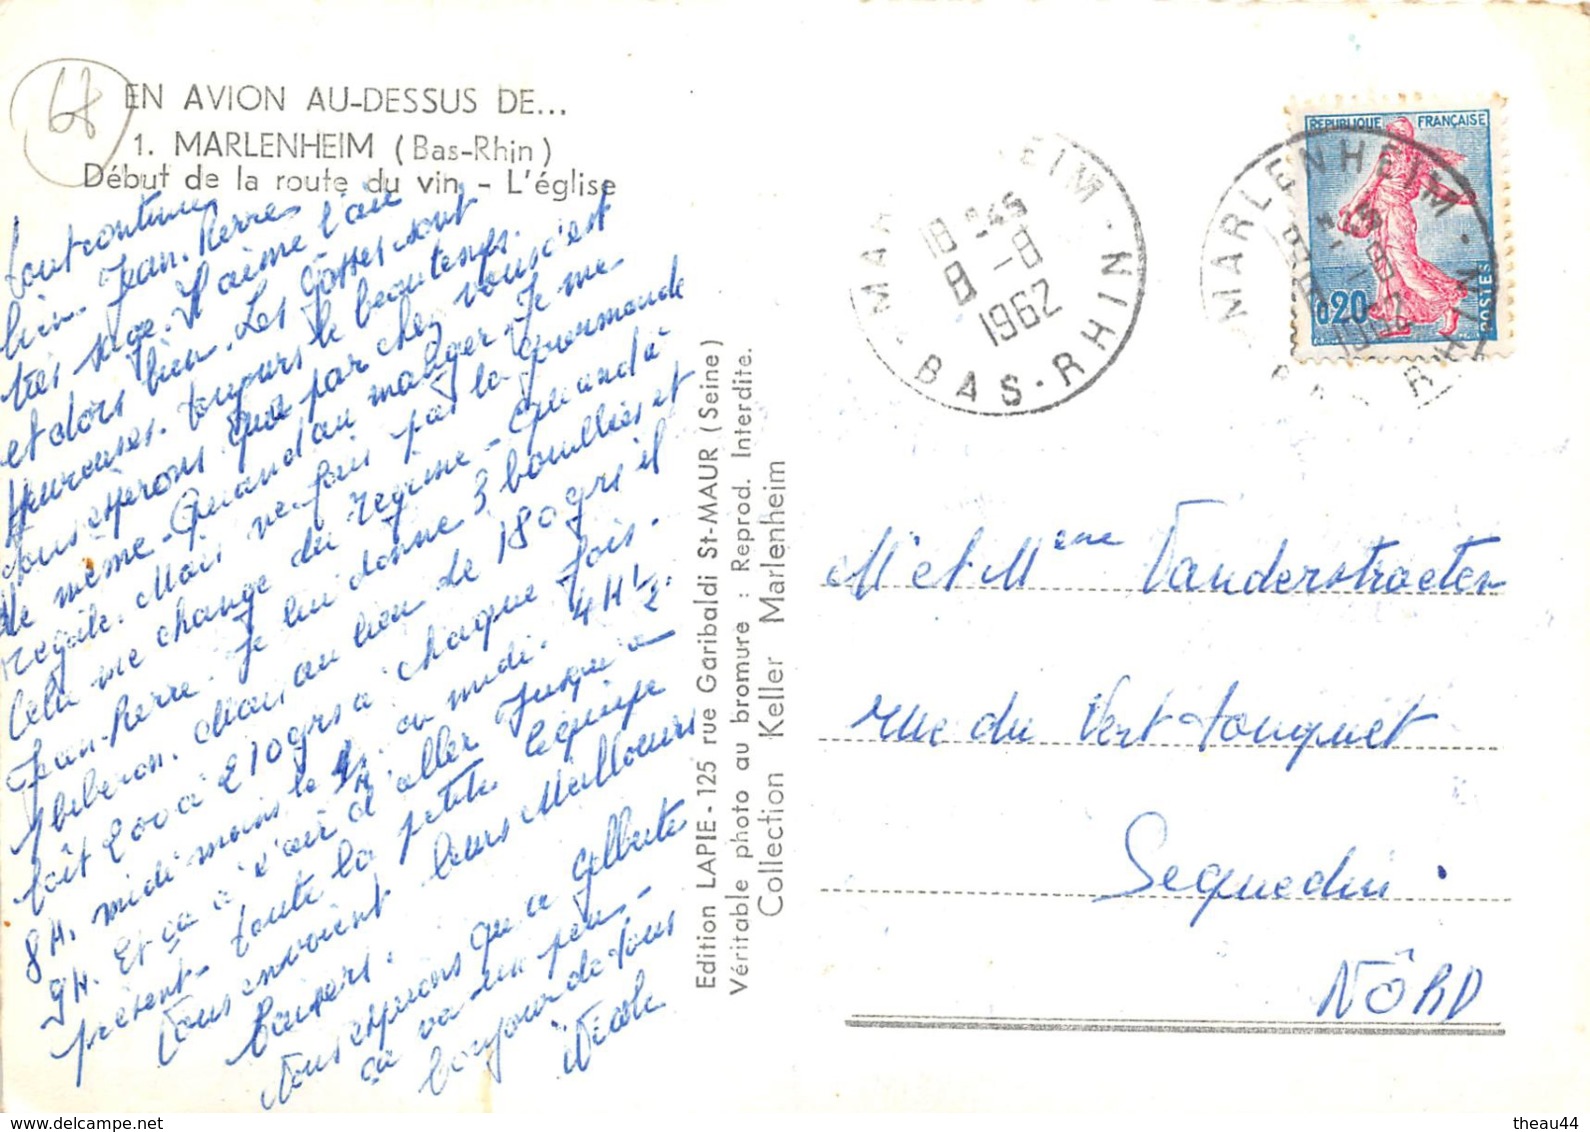 68
EN AVION AU-DESSUS DE...
1. MARLENHEIM (Bas-Rhin)
Début de la route du vin - L'église
tout continue
bien. Jean-Pierre
très sage. Il aime l'air
et dors bien. Les gosses sont
Heureuses. toujours le beau temps.
Nous esperons que par chez vous c'est
de même. Quand au manger. Je me
régale. Mais ne fais pas la gourmande
Cela me change du régime. Quand à
Jean-Pierre. Je lui donne 3 bouillies et
1 biberon. Mais au lieu de 180 grs il
boit 200 à 210 grs à chaque fois.
8H. midi moins le 1/4 ou midi. 4H 1/2.
9H. Et ça a l'air d'aller jusqu'à
présent. toute la petite équipe
vous envoient leurs Meilleurs
baisers.
Nous esperons que a Gilberte
ça va un peu.
bonjour de tous
Nicole
Edition LAPIE - 125 rue Garibaldi St-MAUR (Seine)
Véritable photo au bromure : Reprod. Interdite.
Collection Keller Marlenheim
MA EIM - BAS-RHIN
18H45
8-8
1962
REPUBLIQUE FRANÇAISE
0,20
POSTES
MARLENHEIM
1962
Mr et Mme Vanderstraeten
rue du Vert touquet
Sequedin.
NÔRD
theau44